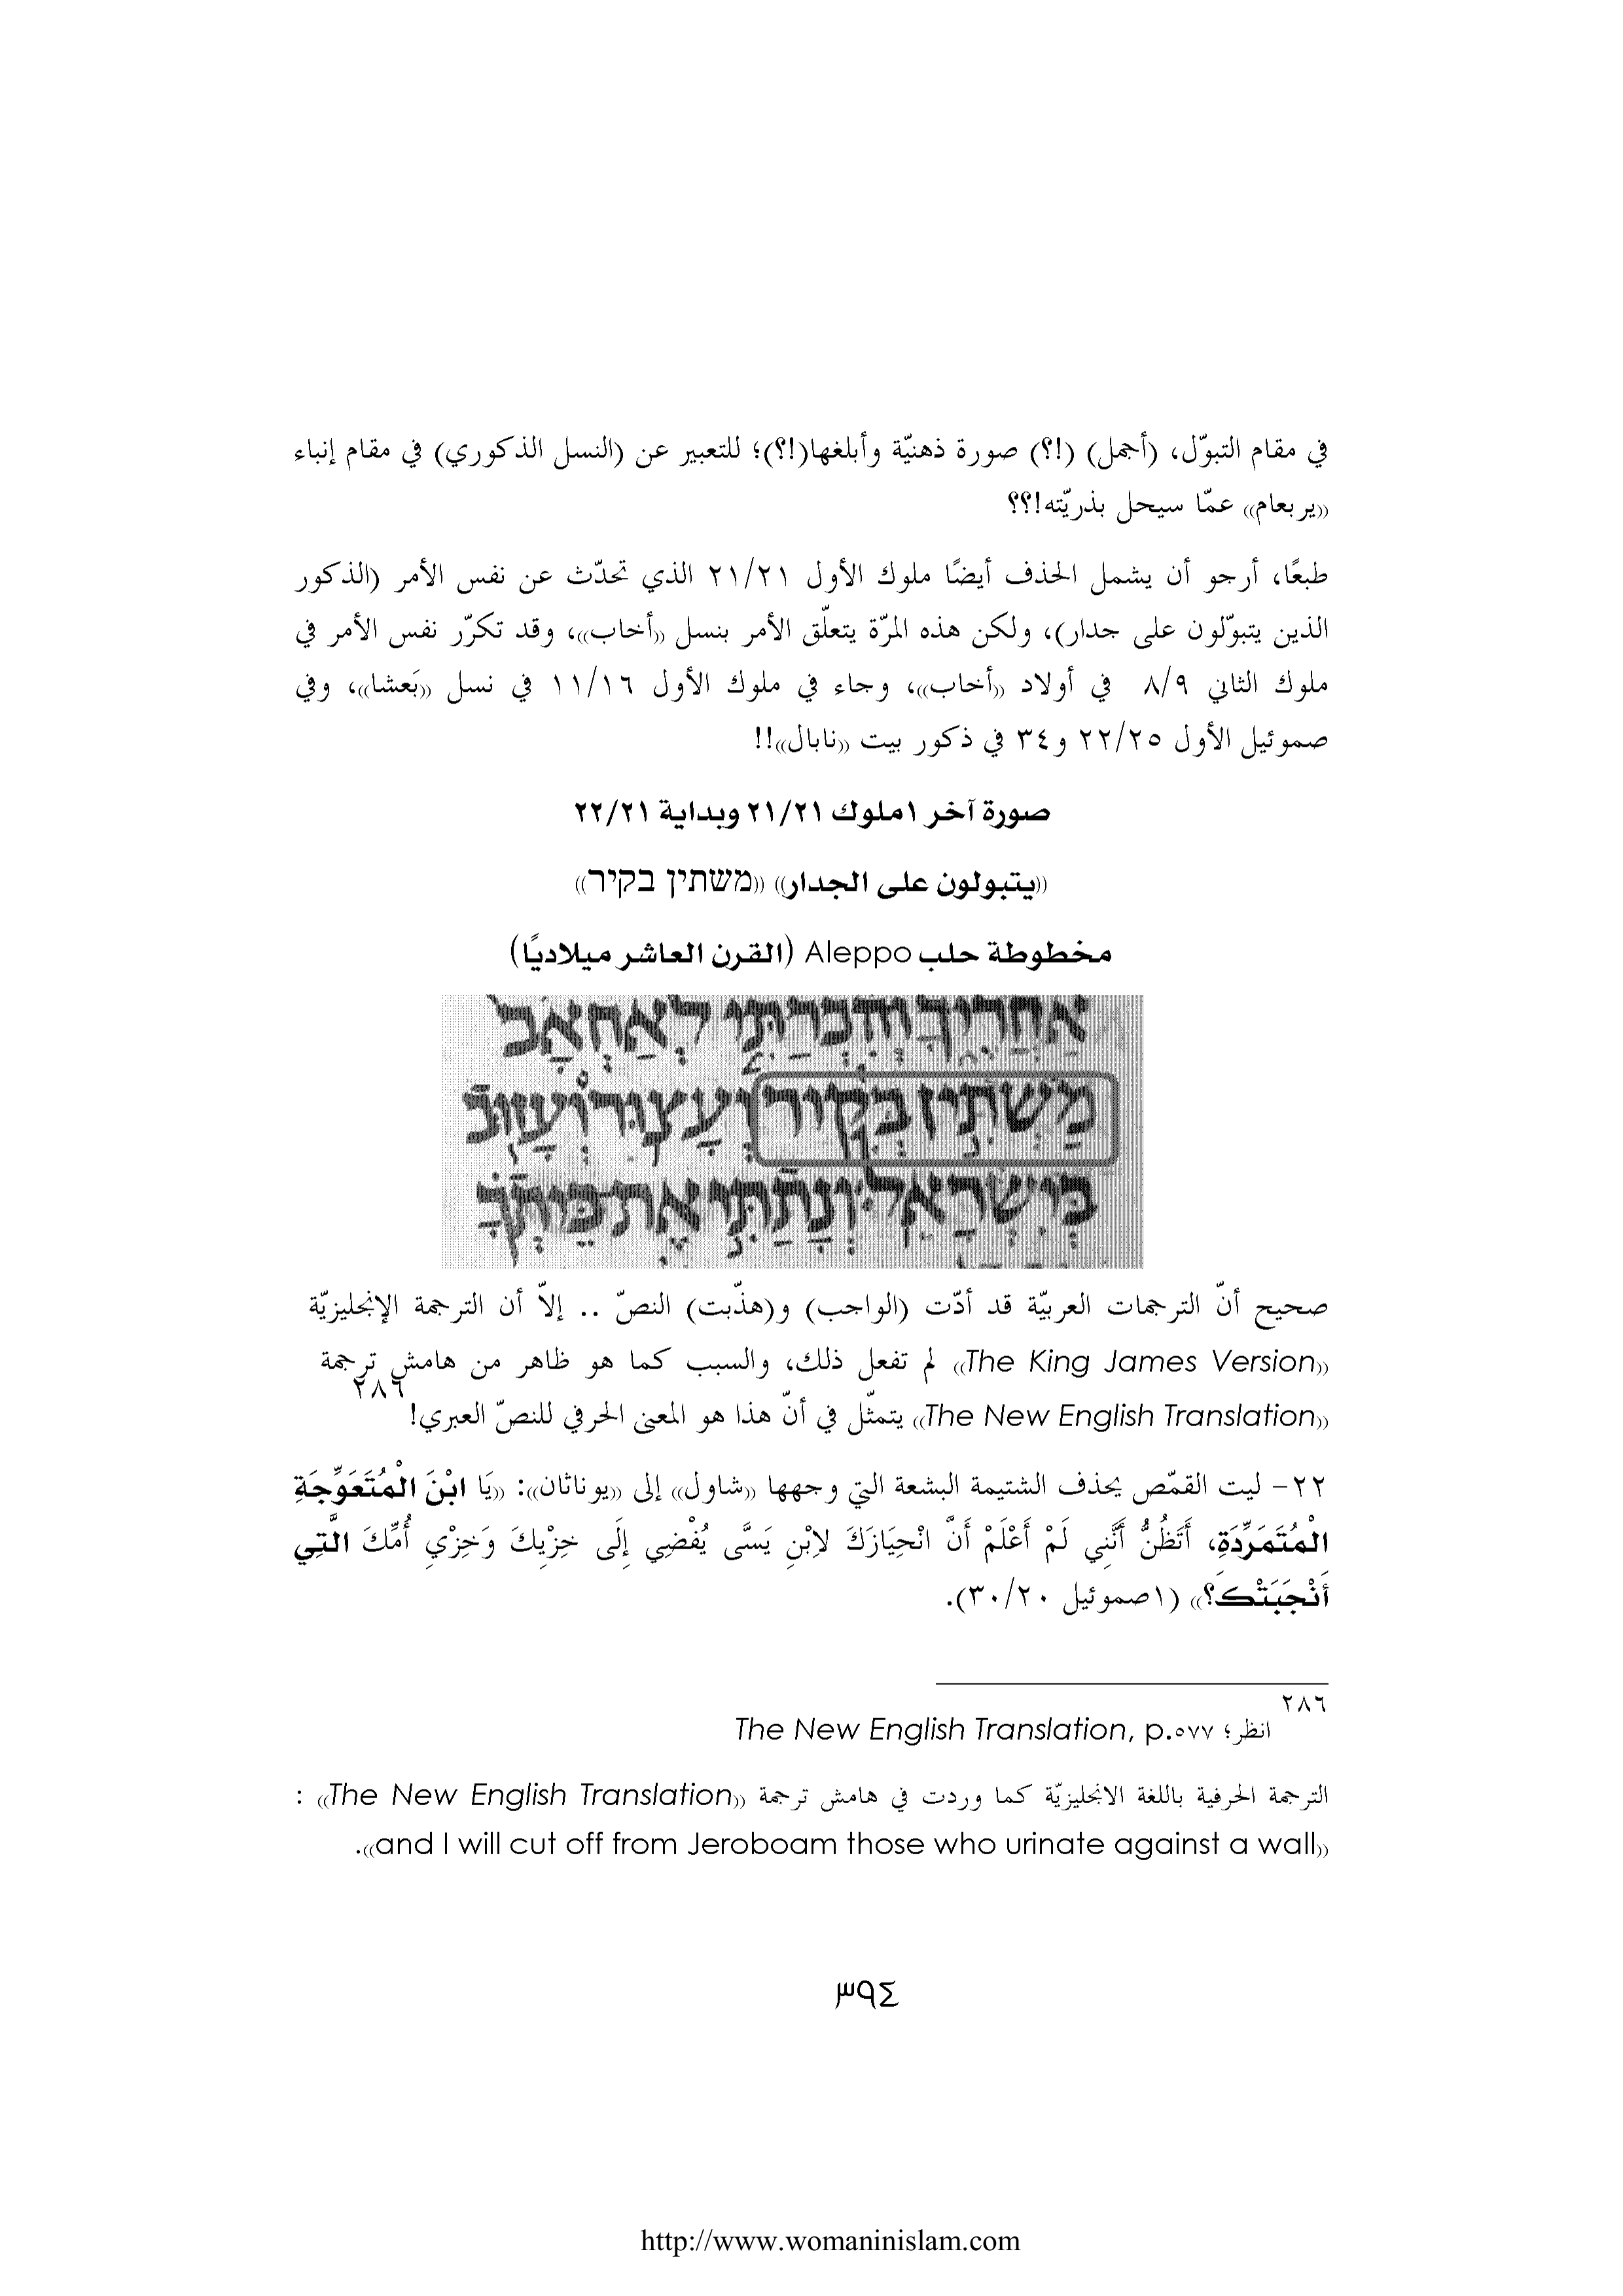 في مقام التبوّل، (أجمل) (!؟) صورة ذهنيّة وأبلغها(!؟)؛ للتعبير عن (النسل الذكوري) في مقام إنباء
((يربعام)) عمّا سيحل بذريّته!؟؟
طبعًا، أرجو أن يشمل الحذف أيضًا ملوك الأول ٢١/٢١ الذي تحدّث عن نفس الأمر (الذكور
الذين يتبوّلون على جدار)، ولكن هذه المرّة يتعلّق الأمر بنسل ((أخاب))، وقد تكرّر نفس الأمر في
ملوك الثاني ٨/٩ في أولاد ((أخاب))، وجاء في ملوك الأول ١١/١٦ في نسل ((بَعشا))، وفي
صموئيل الأول ٢٢/٢٥ و٣٤ في ذكور بيت ((نابال))!!
صورة آخر ١ملوك ٢١/٢١ وبداية ٢٢/٢١
((يتبولون على الجدار)) ((משתין בקיר))
مخطوطة حلب Aleppo (القرن العاشر ميلاديًا)
אַחֲרֶיךָ וְהִכְרַתִּי לְאַחְאָב
מַשְׁתִּין בְּקִיר וְעָצוּר וְעָזוּב
בְּיִשְׂרָאֵל׃ וְנָתַתִּי אֶת בֵּיתְךָ
صحيح أنّ الترجمات العربيّة قد أدّت (الواجب) و(هذّبت) النصّ .. إلاّ أن الترجمة الإنجليزيّة
((The King James Version)) لم تفعل ذلك، والسبب كما هو ظاهر من هامش ترجمة
((The New English Translation)) يتمثّل في أنّ هذا هو المعنى الحرفي للنصّ العبري!٢٨٦
٢٢- ليت القمّص يحذف الشتيمة البشعة التي وجهها ((شاول)) إلى ((يوناثان)): ((يَا ابْنَ الْمُتَعَوِّجَةِ
الْمُتَمَرِّدَةِ، أَتَظُنُّ أَنَّنِي لَمْ أَعْلَمْ أَنَّ انْحِيَازَكَ لاِبْنِ يَسَّى يُفْضِي إِلَى خِزْيِكَ وَخِزْيِ أُمِّكَ الَّتِي
أَنْجَبَتْكَ؟)) (١صموئيل ٣٠/٢٠).
٢٨٦ انظر؛ The New English Translation, p.٥٧٧
الترجمة الحرفية باللغة الانجليزيّة كما وردت في هامش ترجمة ((The New English Translation)) :
((and I will cut off from Jeroboam those who urinate against a wall)).
٣٩٤
http://www.womaninislam.com